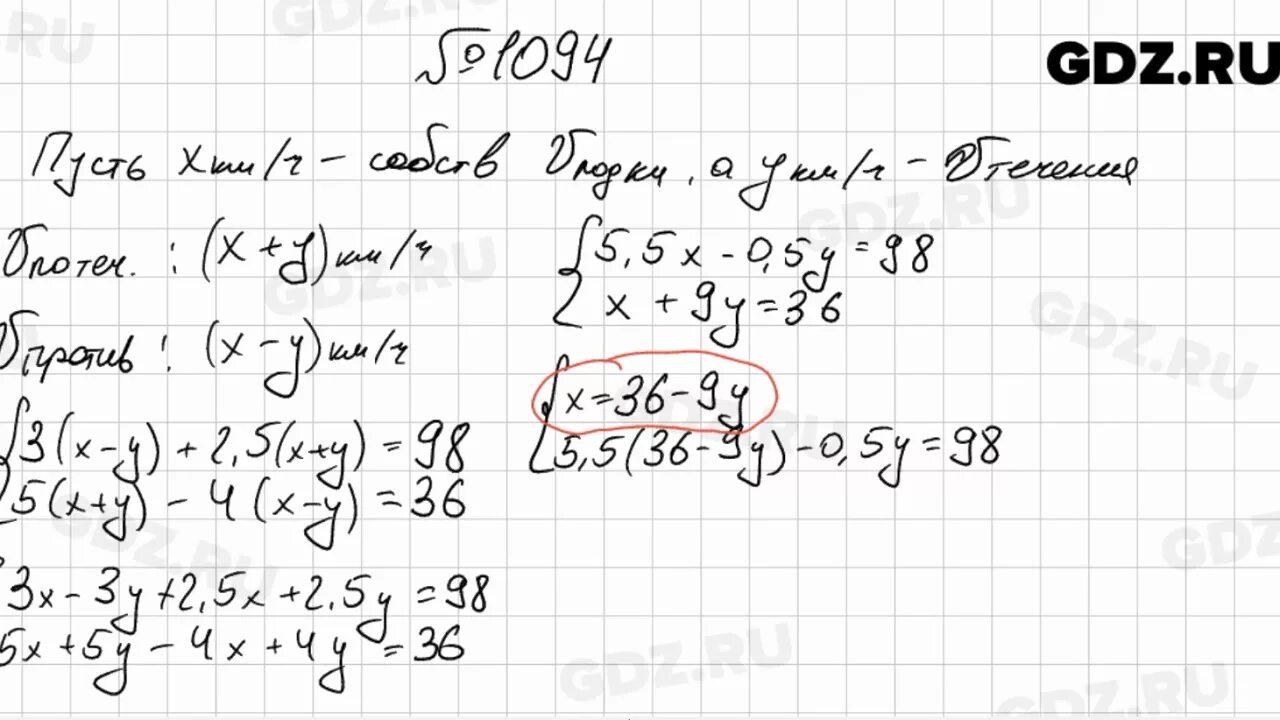 №1094
GDZ.RU
Пусть x км/ч – собств V лодки, а y км/ч – V течения
V по теч. : (x + y) км/ч
V против : (x – y) км/ч
3(x – y) + 2,5(x+y) = 98
5(x+y) – 4(x–y) = 36
3x – 3y + 2,5x + 2,5y = 98
5x + 5y – 4x + 4y = 36
5,5x – 0,5y = 98
x + 9y = 36
x = 36 – 9y
5,5(36 – 9y) – 0,5y = 98